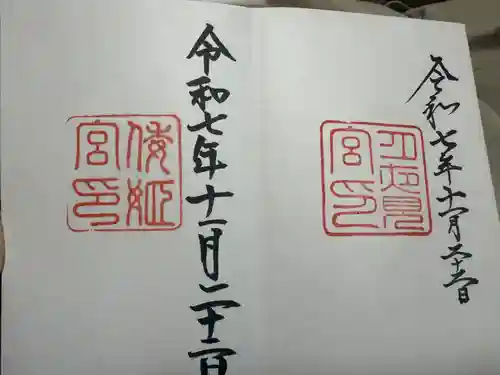 令和七年十一月二十二日
月夜見
宮印
令和七年十一月二十二日
倭姫
宮印